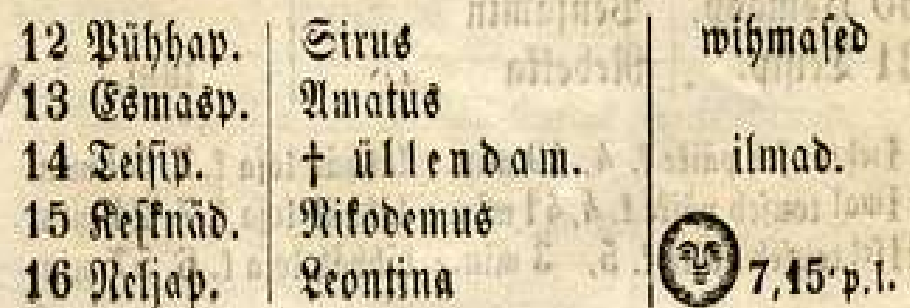 12 Pühhap. Sirus wihmased
13 Esmasp. Amatus
14 Teisip. † üllendam. ilmad.
15 Kesknäd. Nikodemus
16 Neljap. Leontina 7,15·p.l.